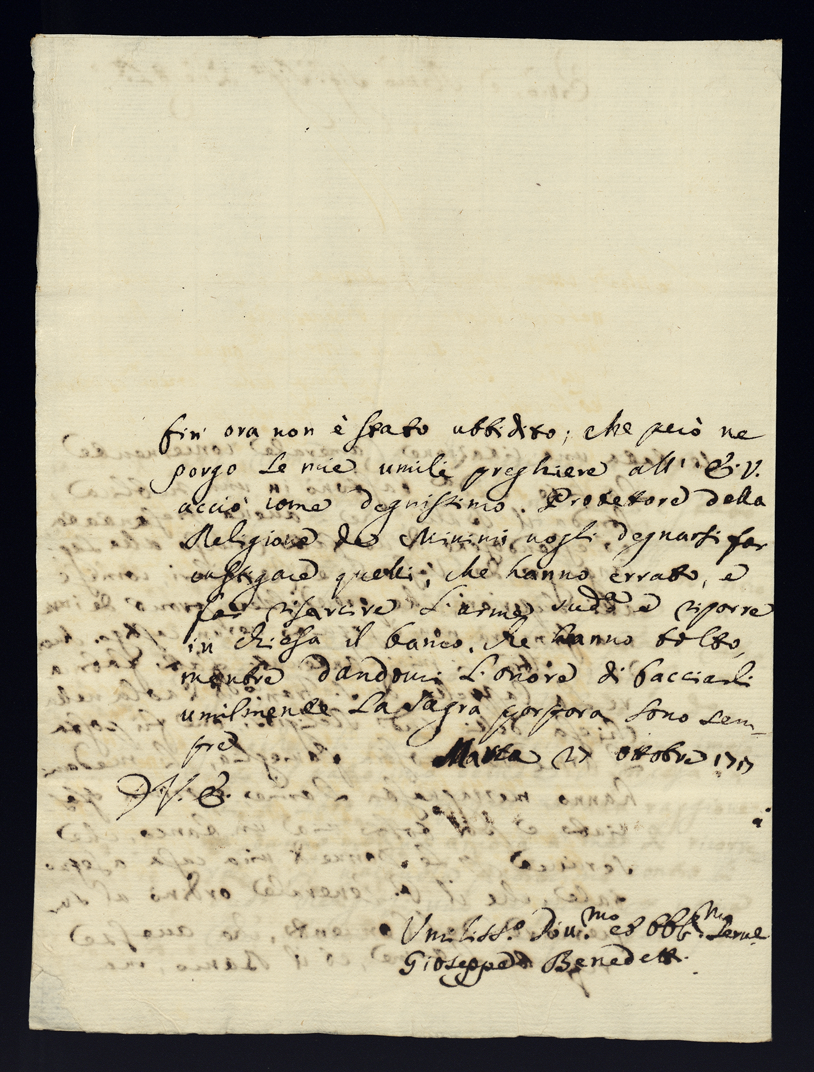 fin' ora non è stato ubbidito; che però ne
porgo le mie umili preghiere all' E.V.
acciò come degnissimo Protetore della
Religione de Minimi vogli degnarsi far
castigare quelli, che hanno errato, e
far risarcire l'arme sudda e riporre
in chiesa il banco, che hanno tolto,
mentre dandomi l'onore di bacciarli
umilmente la sagra porpora sono sem-
pre
Marta 27 ottobre 1717
D. V. E.
Umiliss.o Dovi.mo ed obb.mo Serue
Gioseppe Benedetti